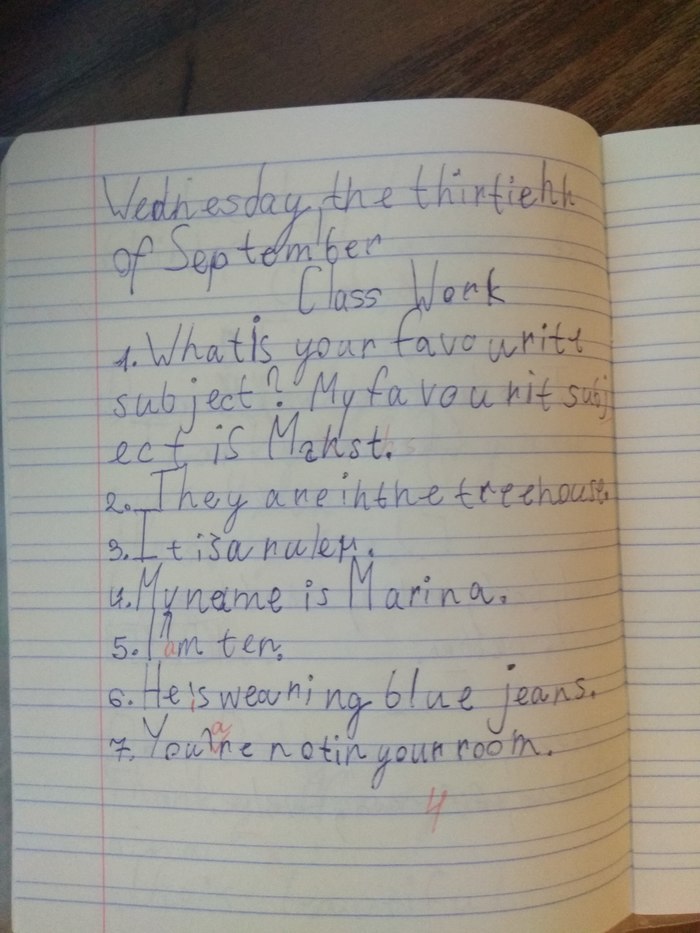 Wednesday, the thirtiehh
of September
Class Work
1. What is your favourite
subject? My favourit subj
ect is Mahst.
2. They are in the treehouse.
3. It is a ruler.
4. My name is Marina.
5. I am ten.
6. He is wearing blue jeans.
7. You are not in your room.
4